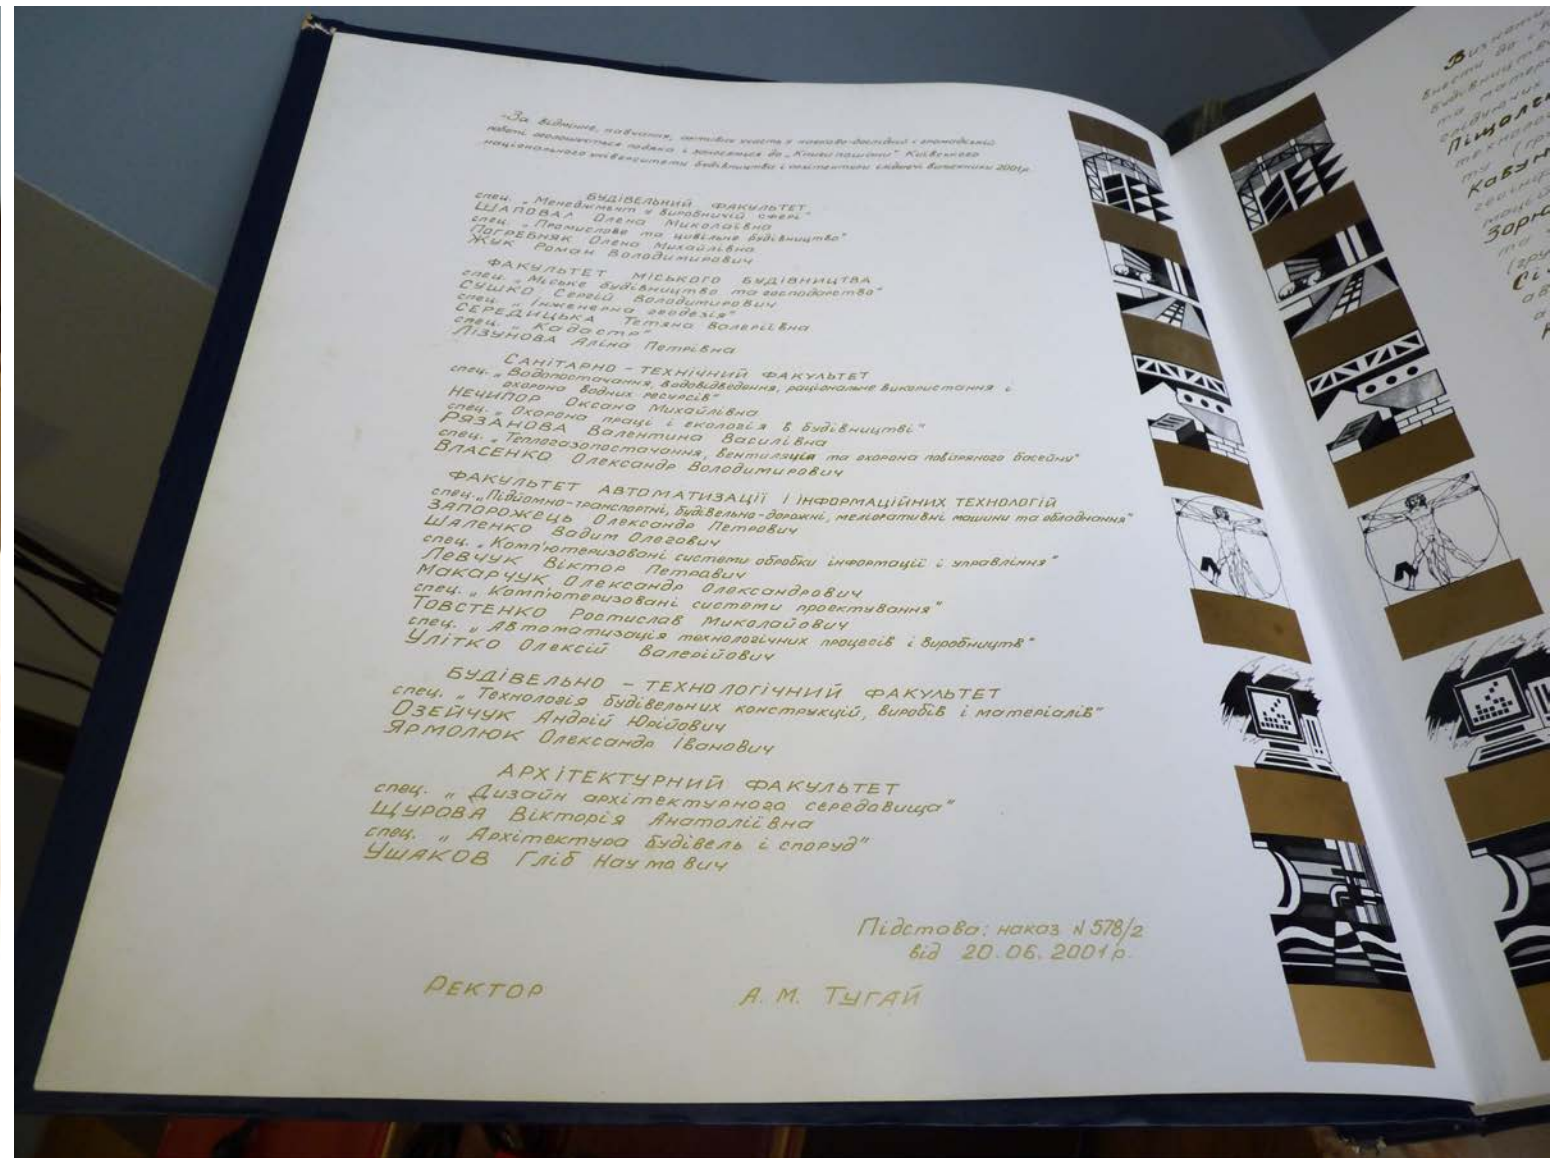 За відмінне навчання, активну участь у науково-дослідній і громадській
роботі оголошується подяка і заноситься до „Книги пошани" Київського
національного університету будівництва і архітектури слідуючі випускники 2001р.
БУДІВЕЛЬНИЙ ФАКУЛЬТЕТ
спец. „Менеджмент у виробничій сфері"
ШАПОВАЛ Олена Миколаївна
спец. „Промислове та цивільне будівництво"
ПОГРЕБНЯК Олена Михайлівна
ЖУК Роман Володимирович
ФАКУЛЬТЕТ МІСЬКОГО БУДІВНИЦТВА
спец. „Міське будівництво та господарство"
СУШКО Сергій Володимирович
спец. „Інженерна геодезія"
СЕРЕДИЦЬКА Тетяна Валеріївна
спец. „Кадастр"
ЛІЗУНОВА Аліна Петрівна
САНІТАРНО-ТЕХНІЧНИЙ ФАКУЛЬТЕТ
спец. „Водопостачання, водовідведення, раціональне використання і
охорона водних ресурсів"
НЕЧИПОР Оксана Михайлівна
спец. „Охорона праці і екологія в будівництві"
РЯЗАНОВА Валентина Василівна
спец. „Теплогазопостачання, вентиляція та охорона повітряного басейну"
ВЛАСЕНКО Олександр Володимирович
ФАКУЛЬТЕТ АВТОМАТИЗАЦІЇ І ІНФОРМАЦІЙНИХ ТЕХНОЛОГІЙ
спец. „Підйомно-транспортні, будівельно-дорожні, меліоративні машини та обладнання"
ЗАПОРОЖЕЦЬ Олександр Петрович
ШАЛЕНКО Вадим Олегович
спец. „Комп'ютеризовані системи обробки інформації і управління"
ЛЕВЧУК Віктор Петрович
МАКАРЧУК Олександр Олександрович
спец. „Комп'ютеризовані системи проектування"
ТОВСТЕНКО Ростислав Миколайович
спец. „Автоматизація технологічних процесів і виробництв"
УЛІТКО Олексій Валерійович
БУДІВЕЛЬНО-ТЕХНОЛОГІЧНИЙ ФАКУЛЬТЕТ
спец. „Технологія будівельних конструкцій, виробів і матеріалів"
ОЗЕЙЧУК Андрій Юрійович
ЯРМОЛЮК Олександр Іванович
АРХІТЕКТУРНИЙ ФАКУЛЬТЕТ
спец. „Дизайн архітектурного середовища"
ЩУРОВА Вікторія Анатоліївна
спец. „Архітектура будівель і споруд"
УШАКОВ Гліб Наумович
Підстава: наказ N 578/2
від 20.06.2001р.
РЕКТОР А. М. ТУГАЙ
внести до